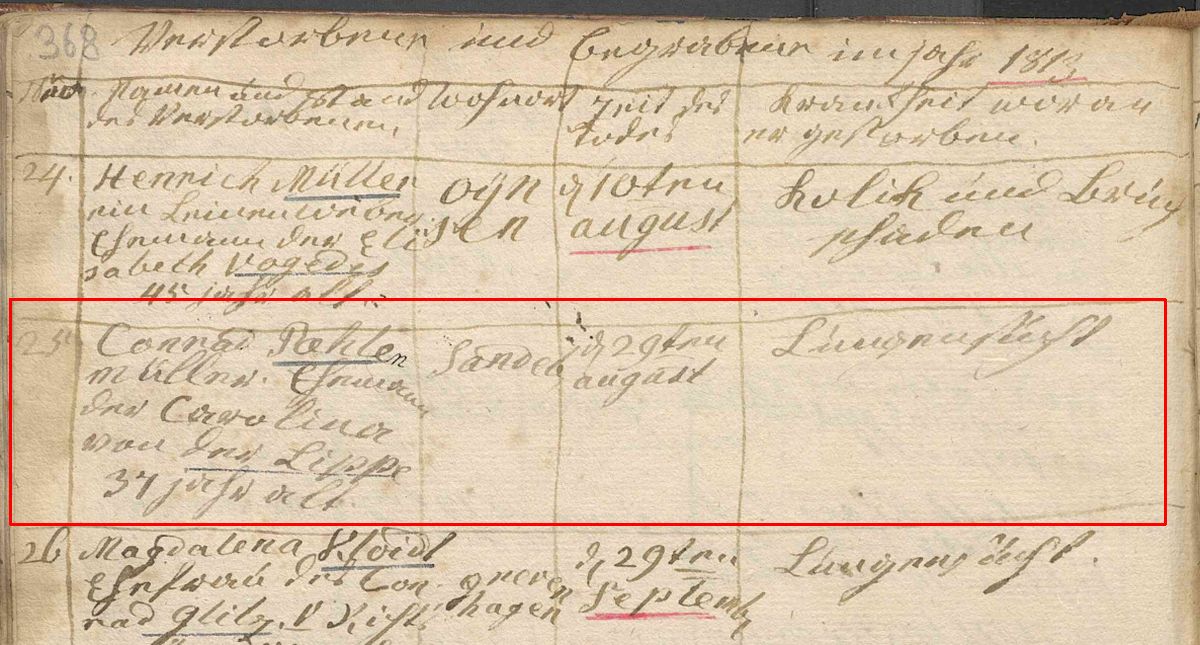 368 Verstorbene und begrabene im jahr 1813
Namen und Stand wohnort zeit des Krankheit woran
des Verstorbenen todes er gestorben.
24. Henrich Müller oijn d 10ten Kolik und Brüg
ein Leinenweber sen august schaden
Ehemann der Eli
sabeth Vogedes
45 jahr alt.
25 Conrad Sande d 29ten Lungensucht
müller. Ehemann august
der Carolina
von der Lippe
37 jahr alt.
26 Magdalena d 29ten Lungensücht.
Ehefrau des Con greven Septemb
rad Glitz hagen